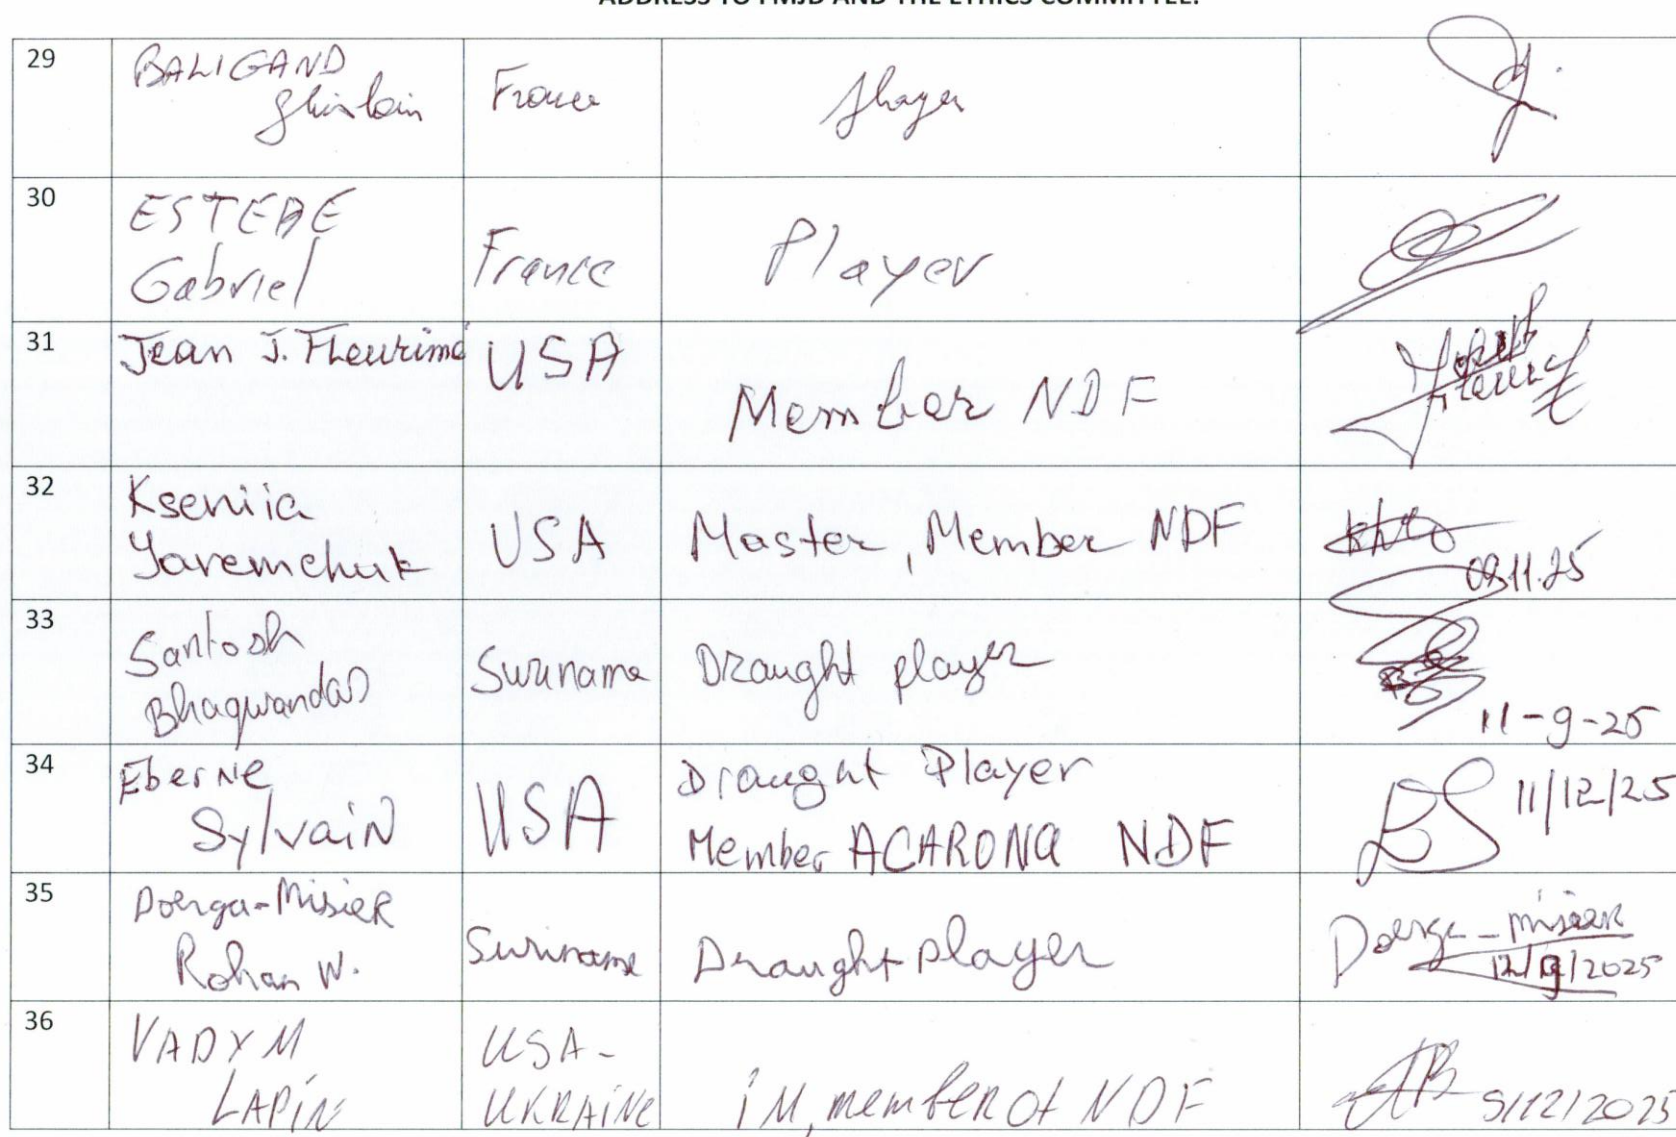 ADDRESS TO FMJD AND THE ETHICS COMMITTEE.
29
BALIGAND
Ghislain
France
Player
30
ESTEBE
Gabriel
France
Player
31
Jean J. Fleurimo
USA
Member NDF
32
Kseniia
Yaremchuk
USA
Master, Member NDF
09.11.25
33
Santosh
Bhagwandas
Suriname
Draught player
11-9-25
34
Eberne
Sylvain
USA
Draught Player
Member ACARONA NDF
11/12/25
35
Doerga-Misier
Rohan W.
Suriname
Draught player
Doerga-misier
36
VADYM
LAPIN
USA-
UKRAINE
iM, member of NDF
9/12/2025